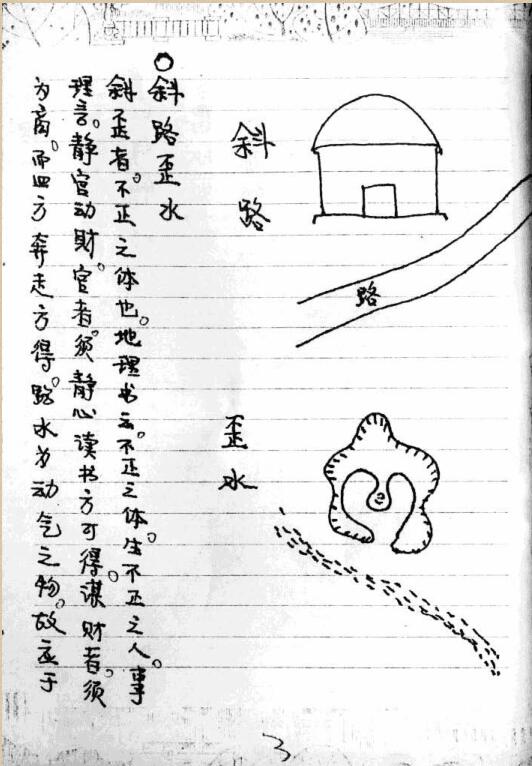 斜路
路
歪水
斜路歪水
斜歪者。不正之体也。地理书云。不正之体。生不正之人事。
理言。静官动财。官者。须静心读书方可得。谋财者。须
为商。而四方奔走方得。路水为动气之物。故应于
3